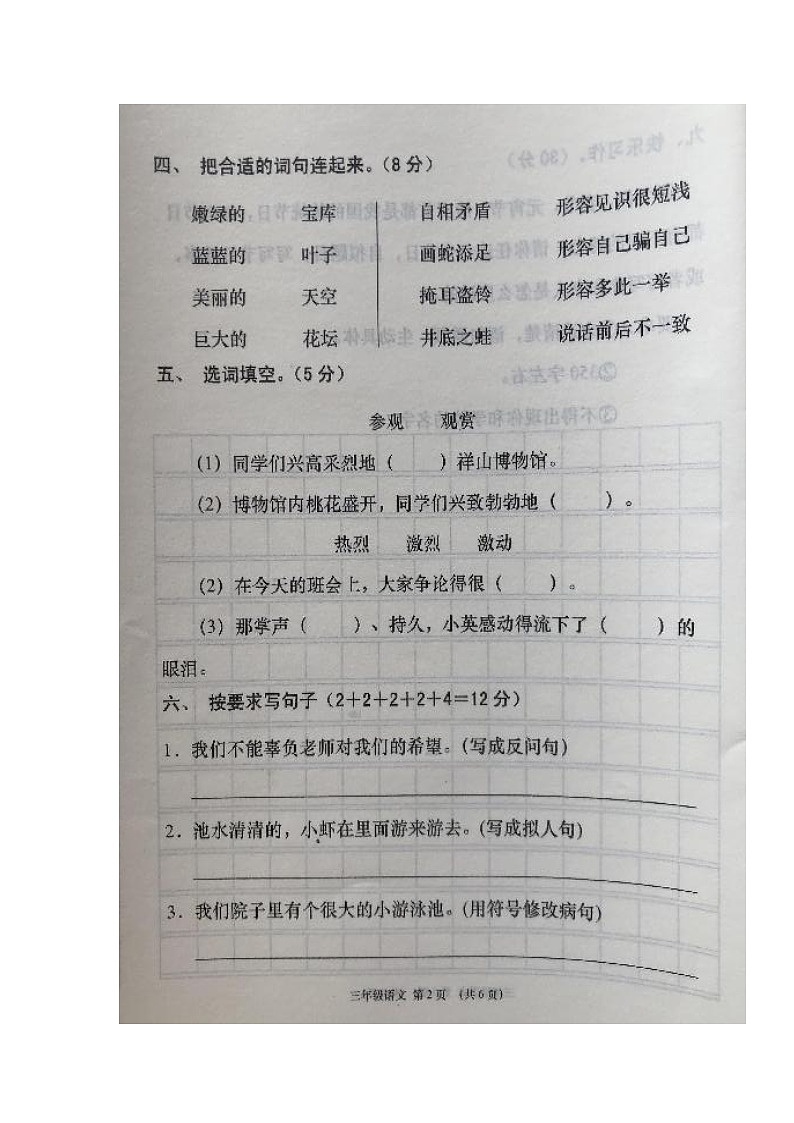 四、 把合适的词句连起来。（8 分）
嫩绿的 宝库 自相矛盾 形容见识很短浅
蓝蓝的 叶子 画蛇添足 形容自己骗自己
美丽的 天空 掩耳盗铃 形容多此一举
巨大的 花坛 井底之蛙 说话前后不一致
五、 选词填空。（5 分）
参观 观赏
(1) 同学们兴高采烈地（ ）祥山博物馆。
(2) 博物馆内桃花盛开，同学们兴致勃勃地（ ）。
热烈 激烈 激动
(2) 在今天的班会上，大家争论得很（ ）。
(3) 那掌声（ ）、持久，小英感动得流下了（ ）的
眼泪。
六、 按要求写句子（2+2+2+2+4=12 分）
1．我们不能辜负老师对我们的希望。(写成反问句)
2．池水清清的，小虾在里面游来游去。(写成拟人句)
3．我们院子里有个很大的小游泳池。(用符号修改病句)
三年级语文 第 2 页 （共 6 页）